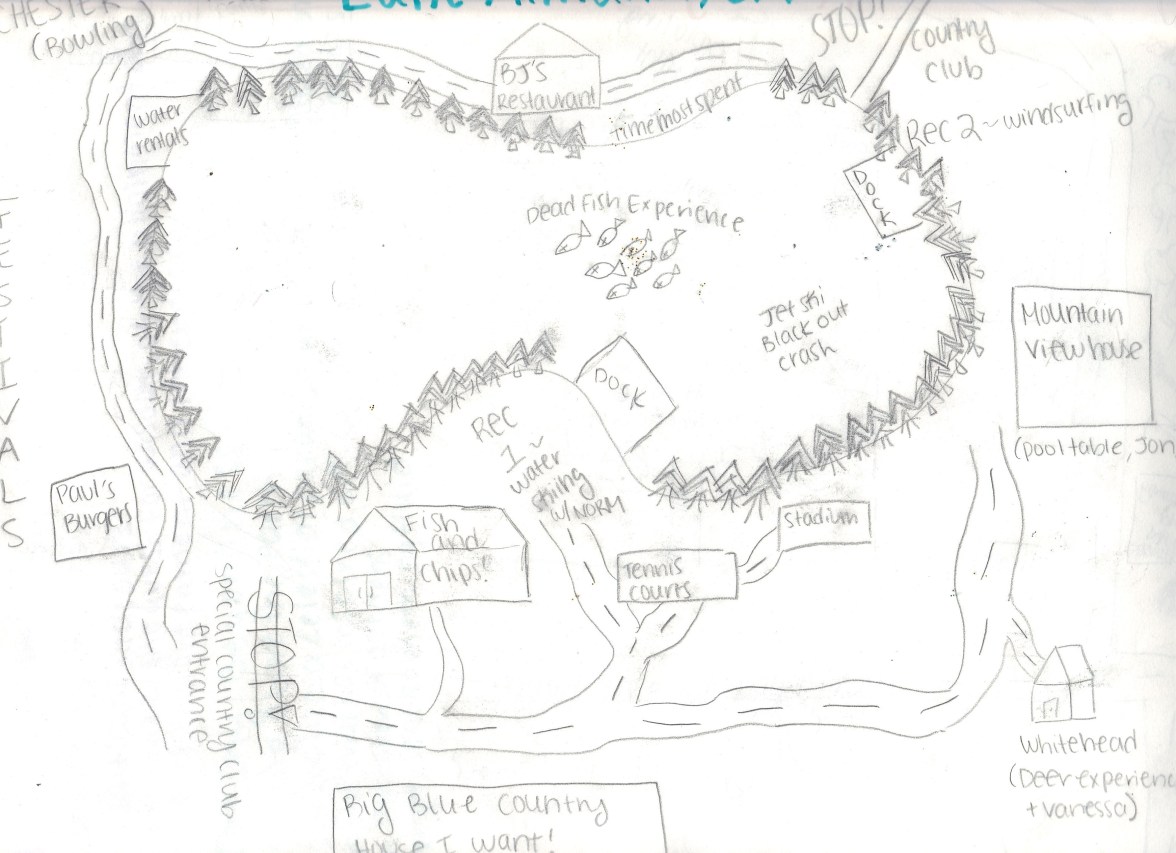 CHESTER
(Bowling)
STOP!
Country
Club
BJ's
Restaurant
time most spent
water
rentals
Rec 2 ~ windsurfing
DOCK
Dead Fish Experience
Jet Ski
Black out
crash
Mountain
View house
(pool table, Jon
DOCK
REC
1 ~
water
skiing
w/ NORM
Paul's
Burgers
Fish
and
chips!
Stadium
Tennis
courts
STOP!
special country club
entrance
whitehead
(Deer experienc
+ vanessa)
Big Blue country
House I want!